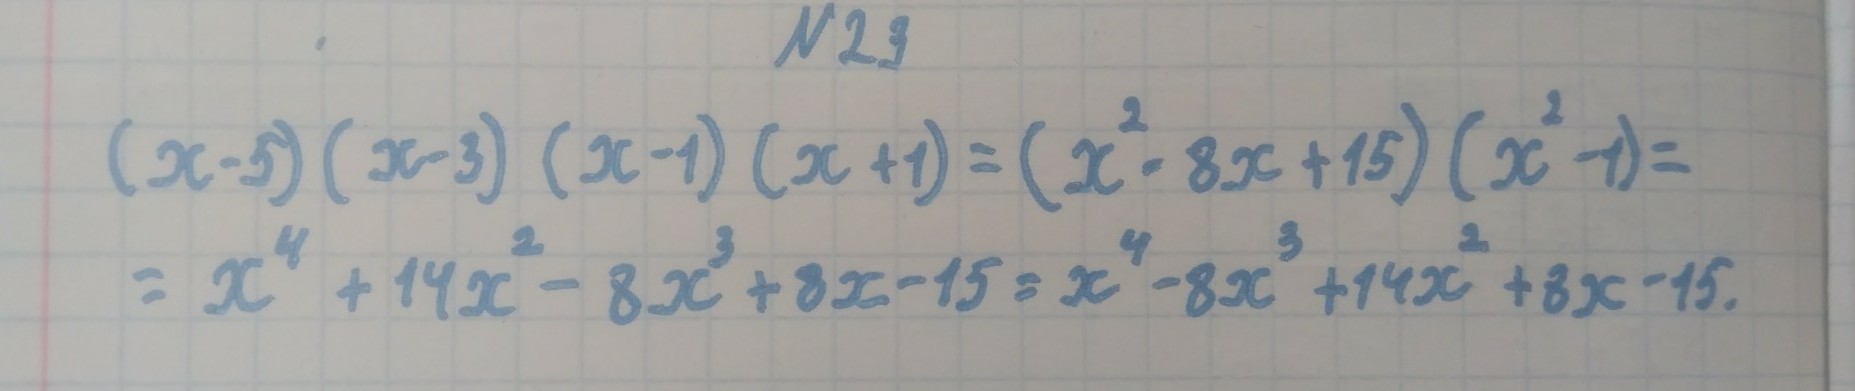 N23
(x-5)(x-3)(x-1)(x+1)=(x²-8x+15)(x²-1)=
=x⁴+14x²-8x³+8x-15=x⁴-8x³+14x²+8x-15.